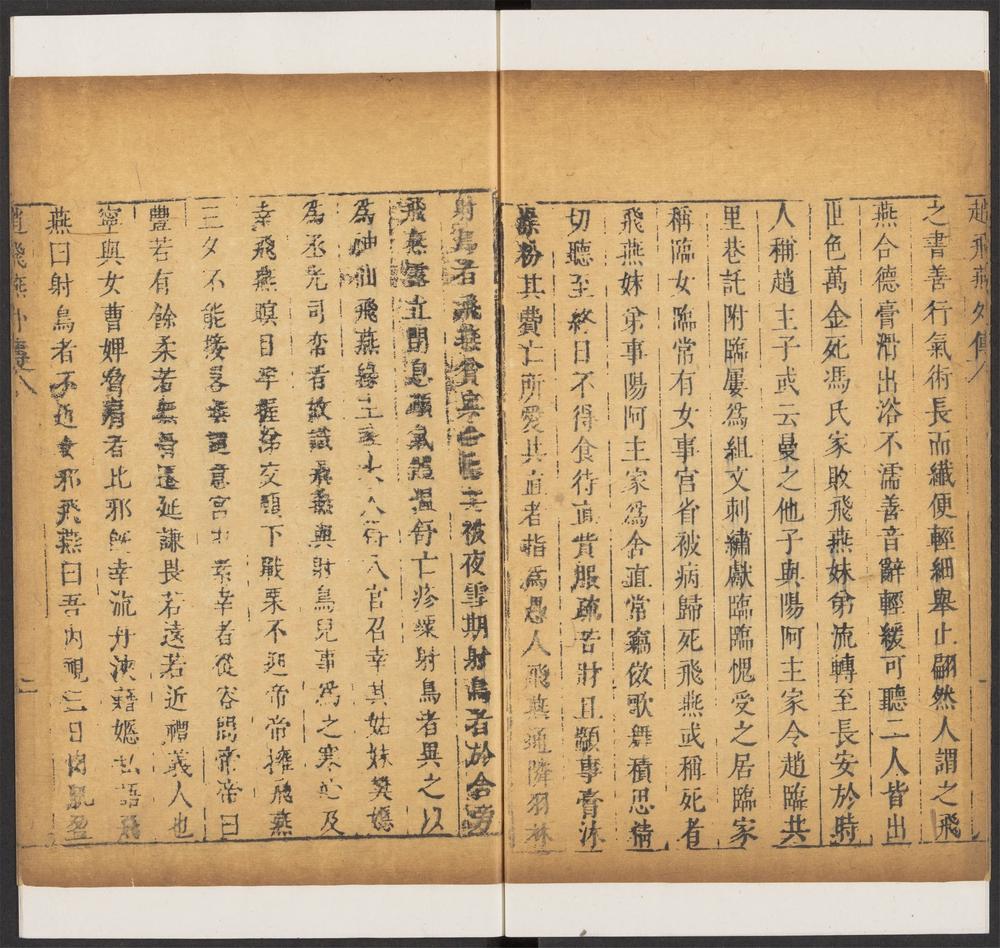 趙飛燕外傳
之書善行氣術長而纖便輕細舉止翩然人謂之飛
燕合德膏滑出浴不濡善音辭輕緩可聽二人皆出
世色萬金死馮氏家敗飛燕妹弟流轉至長安於時
人稱趙主子或云曼之他子與陽阿主家令趙臨共
里巷託附臨屢爲組文刺繡獻臨臨愧受之居臨家
稱臨女臨常有女事宮省被病歸死飛燕或稱死者
飛燕妹弟事陽阿主家爲舍直常竊倣歌舞積思精
切聽至終日不得食待直貲服疏苦財且顓事膏沐
澡粉其費亡所愛其直者指爲愚人飛燕通隣羽林
射鳥者飛燕貧與合德共被夜雪期射鳥者於舍旁
飛燕露立閉息順氣體溫舒亡疹粟射鳥者異之以
爲神仙飛燕緣主家大人得入宮召幸其姑妹樊嫕
爲丞光司帟者故識飛燕與射鳥兒事爲之寒心及
幸飛燕瞑目牢握涕交頤下戰栗不迎帝帝擁飛燕
三夕不能接畧無譴意宮中素幸者從容問帝帝曰
豐若有餘柔若無骨遷延謙畏若遠若近禮義人也
寧與女曹婢脅肩者比邪旣幸流丹浹藉嫕私語飛
燕曰射鳥者不近女邪飛燕曰吾內視三日肉肌盈
趙飛燕外傳
二